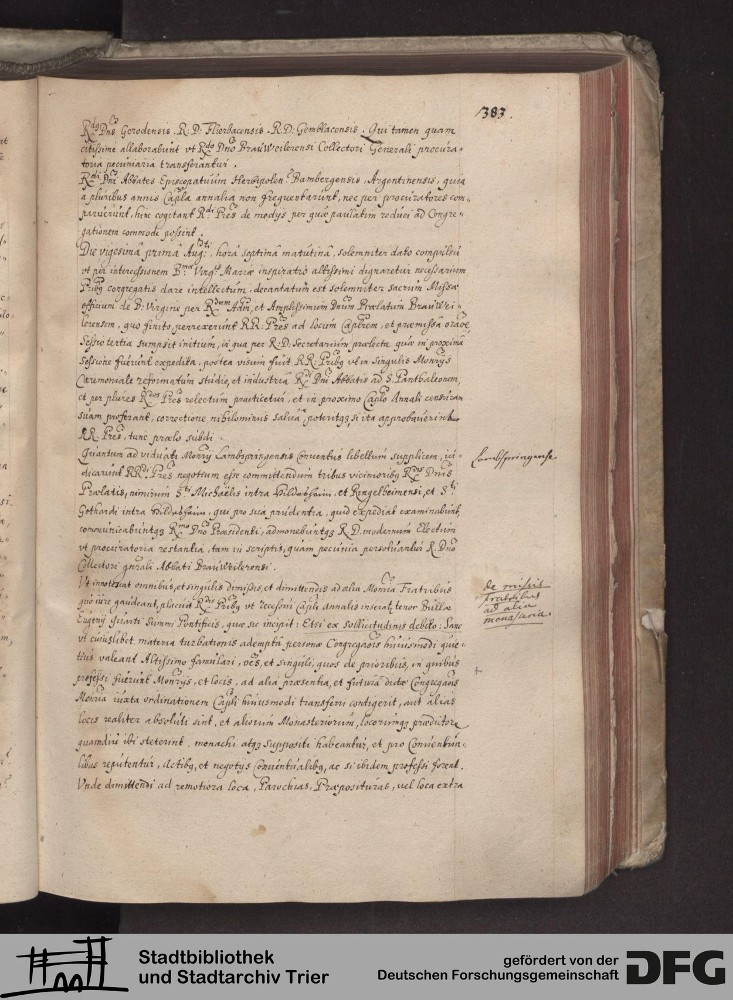 383.
R.dus Dnus Gerodensis. R. D. Flierbacensis. R. D. Gemblacensis. Qui tamen quam
citissimè allaborabunt vt R.do Dno BrauWeilerensi Collectori Generali procura-
toria pecuniaria transferantur.
R.di Dni Abbates Episcopatuum Herbipolen. Bambergensis, Argentinensis, quia
a pluribus annis Capla annalia non frequentarunt, nec per procuratores com-
paruerunt, hinc cogitant R.di Pres de modys per quos paulatim reduci ad Congre-
gationem commodè possint.
Die vigesimâ primâ Augti, horâ septimâ matutinâ, solemniter dato compulsu
vt per intercessionem B.mae Virgis Mariae inspiratio altissimi dignaretur necessarium
Pribus congregatis dare intellectum, decantatum est solemniter sacrum Missae
officium de D: Virgine per R.dum Adm, et Amplissimum Dnum Praelatum BrauWei-
lerensem, quo finito, perrexerunt RR: Pres ad locum Caplarem, et praemissâ oraoe
Sessio tertia sumpsit initium, in qua per R: D: Secretarium praelecta quae in proximâ
Sessione fuerunt expedita, postea visum fuit RR: Pribus vt in singulis Monrys
Caeremoniale reformatum studio, et industriâ R.di Dni Abbatis ad S. Panthaleonem,
et per plures R.dos Pres relectum practicetur, et in proximo Caplo Annali censuram
suam proferant, correctione nihilominus salvâ poteritque, si ita approbaverint
RR Pres, tunc praelo subdi.
Quantum ad viduati Monry Lambspringensis Conventus libellum supplicem, iu-
dicarunt RR.di Pres negotium esse committendum tribus vicinioribus R.dis Dnis
Praelatis, nimirum S.ti Michaëlis intra Hildesheim, et Ringelheimensi, et S.ti
Gothardi intra Hildesheim, qui pro sua prudentia, quid expediat examinabunt,
communicabuntque R.mo Dno Praesidenti, admonebuntque R. D. modernum Electum
vt procuratoria restantia, tam in scriptis, quam pecunia persolvantur R. Dno
Collectori gnrali Abbati BrauWeilerensi.
Lambspringense
Vt innotescat omnibus, et singulis dimissis, et dimittendis ad alia Monria Fratribus
quo iure gaudeant, placuit R.dis Pribus vt recessui Capli annalis inserat, tenor Bullae
Eugeny Quarti Summi Pontificis, quae sic incipit: Etsi ex sollicitudinis debito: Sanè
vt cuiuslibet materia turbationis ademptâ personae Congregaois huiusmodi quie-
tius valeant Altissimo famulari, oes, et singuli, quos de prioribus, in quibus
professi fuerunt Monrys, et locis, ad alia praesentia, et futura dictae Congregaois
Monria iuxta ordinationem Capli huiusmodi transferri contigerit, aut alias
locis realiter absoluti sint, et aliorum Monasteriorum, locorumque praedictorum
quamdiu ibi steterint, monachi atque suppositi habeantur, et pro Conventua-
libus reputentur, actibus, et negotys Conventualibus, ac si ibidem professi forent.
Vnde dimittendi ad remotiora loca, Parochias, Praeposituras, vel loca extra
de missis
Fratribus
ad alia
monasteria.
+
Stadtbibliothek
und Stadtarchiv Trier
gefördert von der
Deutschen Forschungsgemeinschaft
DFG